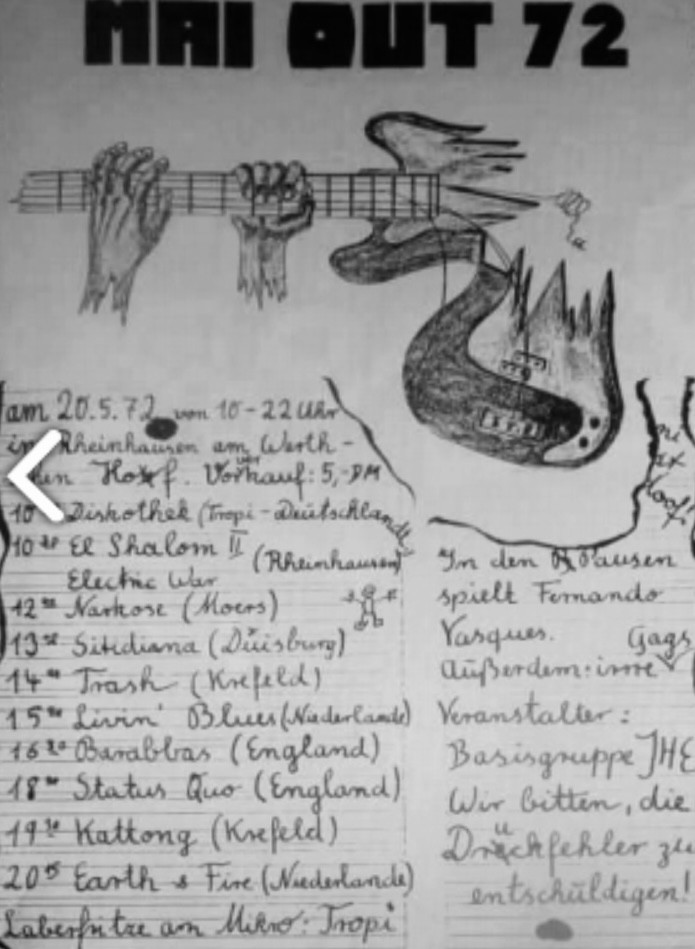 MAI OUT 72
am 20.5.72 von 10-22 Uhr
in Rheinhausen am Werth-
Hof. Vorverkauf: 5,-DM
10 Diskothek (Tropi-Deutschlands
10³⁰ El Shalom II (Rheinhausen)
Electric War
12 Narkose (Moers)
13 Sitidiana (Duisburg)
14 Trash (Krefeld)
15 Livin' Blues (Niederlande)
16³⁰ Barabbas (England)
18 Status Quo (England)
19³⁰ Kattong (Krefeld)
20 Earth & Fire (Niederlande)
Laberfritze am Mikro: Tropi
In den Pausen
spielt Fernando
Vasques.
Außerdem: irre Gags
Veranstalter:
Basisgruppe JHE
Wir bitten, die
Druckfehler zu
entschüldigen!